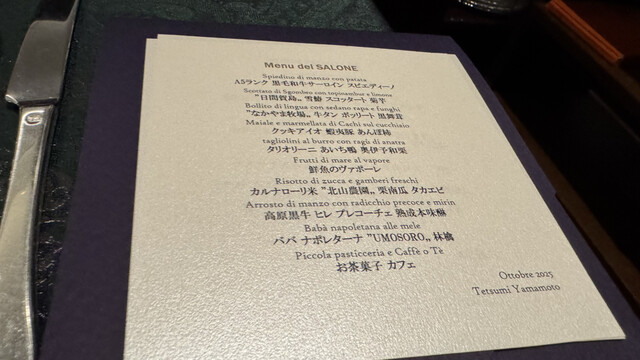 Menu del SALONE
Spiedino di manzo con patata
A5ランク 黒毛和牛サーロイン スピエディーノ
Scottata di Sgombro con topinambur e limone
"日間賀島„ 雪鰆 スコッタート 菊芋
Bollito di lingua con sedano rapa e funghi
"なかやま牧場„ 牛タン ボッリート 黒舞茸
Maiale e marmellata di Cachi sul cucchiaio
クッキアイオ 蝦夷豚 あんぽ柿
tagliolini al burro con ragù di anatra
タリオリーニ あいち鴨 奥伊予和栗
Frutti di mare al vapore
鮮魚のヴァポーレ
Risotto di zucca e gamberi freschi
カルナローリ米 "北山農園„ 栗南瓜 タカエビ
Arrosto di manzo con radicchio precoce e mirin
高原黒牛 ヒレ プレコーチェ 熟成本味醂
Babà napoletana alle mele
ババ ナポレターナ "UMOSORO„ 林檎
Piccola pasticceria e Caffè o Tè
お茶菓子 カフェ
Ottobre 2025
Tetsumi Yamamoto